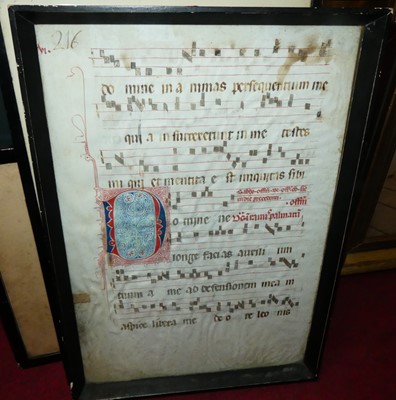 236
do mine in a nimas persequentium me
qui a insurrexerunt in me testes
ini qui et mentita e st iniquitas sibi
offm
omine ne
longe facias auxili um
tuum a me ad defensionem mea in
aspice libera me de o re leo nis